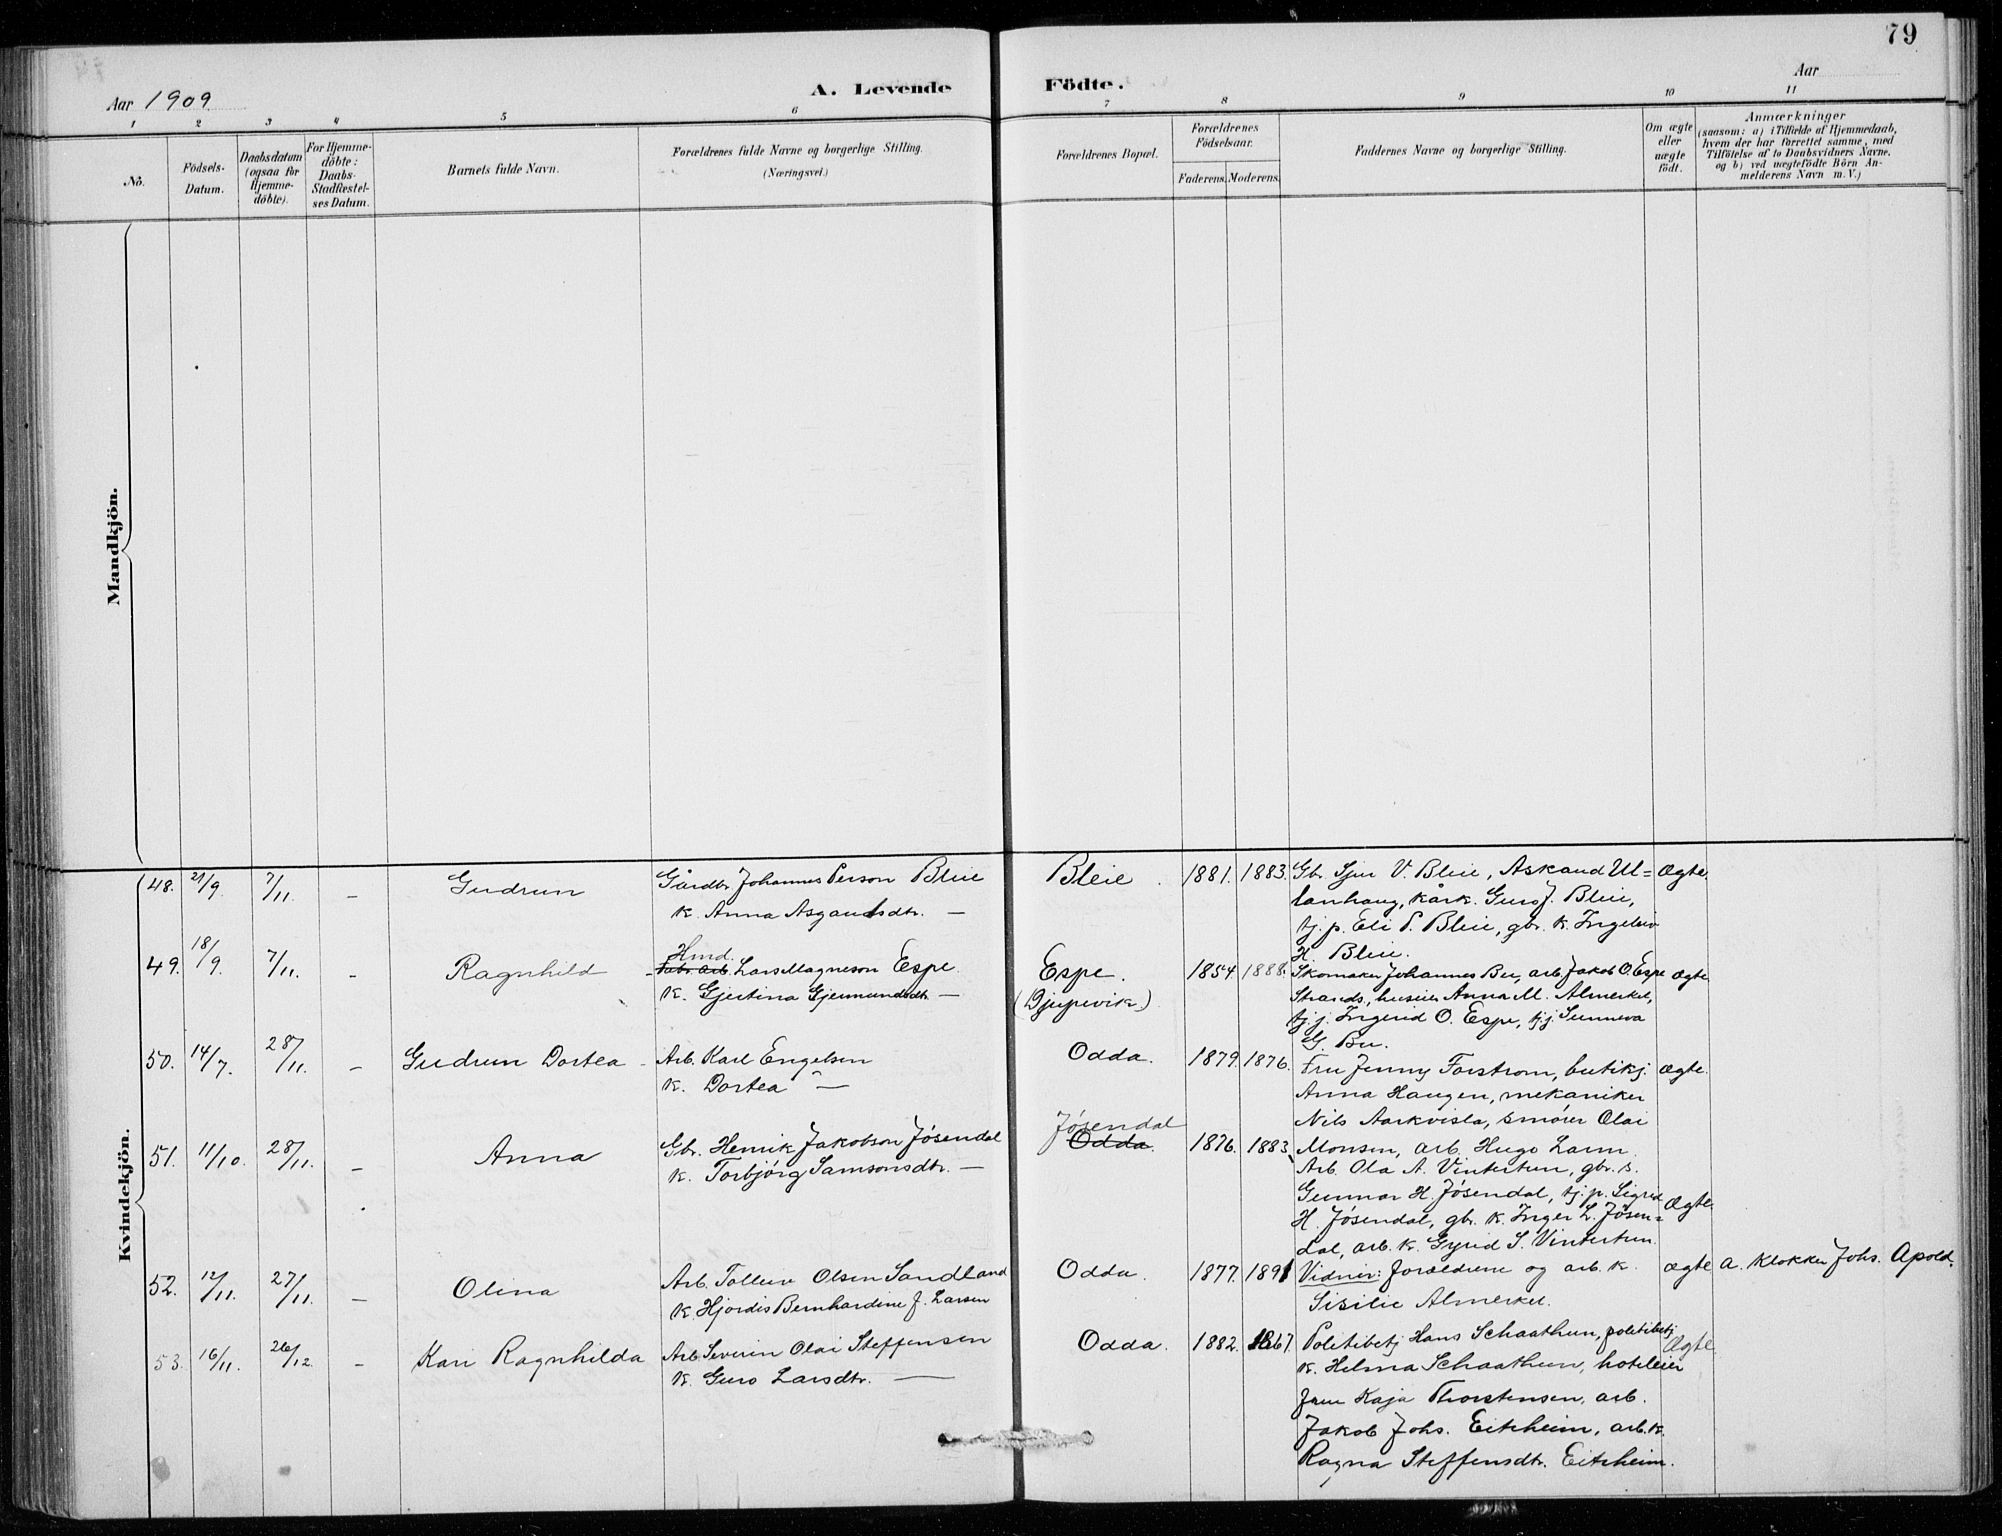 79
Aar 1909
A. Levende Födte.
Aar
1 2 3 4 5 6 7 8 9 10 11
No.
Födsels-Datum.
Daabsdatum (ogsaa for Hjemme-döbte).
For Hjemme-döbte: Daabs-Stadfæstel-ses Datum.
Barnets fulde Navn.
Forældrenes fulde Navne og borgerlige Stilling. (Næringsvei.)
Forældrenes Bopæl.
Forældrenes Födselsaar.
Faderens. Moderens.
Faddernes Navne og borgerlige Stilling.
Om ægte eller uægte födt.
Anmærkninger
(saasom: a) i Tilfælde af Hjemmedaab,
hvem der har forrettet samme, med
Tilföielse af to Daabsvidners Navne,
og b) ved uægtefödte Börn An-
melderens Navn m. V.)
Mandkjön.
Kvindekjön.
48. 21/9. 7/11. – Gudrun
Gårdbr. Johannes Person Bleie
k. Anna Asgautsdtr. —
Bleie. 1881. 1883.
Gbr. Sjur V. Bleie, Askaud Ul=
lanhaug, kårk. Guro J. Bleie,
tj. p. Eli P. Bleie, gbr. k. Ingeleiv
H. Bleie.
Ægte
49. 18/9. 7/11. – Ragnhild
Hmd.
Fabr. arb. Lars Magneson Espe
k. Gjertina Gjermundsdtr. —
Espe. (Djupevik) 1854 1888.
Skomaker Johannes Bu, arb. Jakob O. Espe
Strands, huseier Anna M. Almerket,
tj. j. Ingerid O. Espe, tj. j. Sunneva
G. Bu.
ægte
50. 14/7. 28/11. – Gudrun Dortea
Arb. Karl Engelsen
k. Dortea —
Odda. 1879. 1876.
Fru Jenny Forstrom, butikj.
Anna Haugen, mekaniker
Nils Aarkvisla, smører Olai
Monsen, arb. Hugo Larm.
ægte.
51. 11/10. 28/11. – Anna
Gbr. Henrik Jakobson Jøsendal
k. Torbjørg Samsonsdtr. —
Jøsendal
Odda. 1876. 1883.
Arb. Ola A. Vintertun, gbr. s.
Gunnar H. Jøsendal, tj. p. Sigrid
H. Jøsendal, gbr. k. Inger L. Jøsen=
dal, arb. k. Gyrid S. Vintertun.
Ægte.
52. 12/11. 27/11. – Olina
Arb. Tolleiv Olsen Sandland
k. Hjordis Bernhardine J. Larsen
Odda. 1877. 1891
Vidner: Forældrene og arb. k.
Sisilie Almerket.
ægte
a. Klokker Johs. Apold.
53. 16/11. 26/12. – Kari Ragnhilda
Arb. Severin Olai Steffensen
k. Guro Larsdtr. —
Odda. 1882. 1867.
Politibetj Hans Schaathun, politibetj
k. Helma Schaathun, hoteleier
frue Kaja Thorstensen, arb.
Jakob Johs. Eitrheim, arb. k.
Ragna Steffensdtr. Eitrheim.
Ægte.